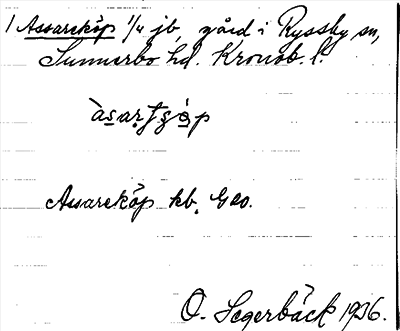 1 Assarsköp 1/4 jb, gård i Ryssby sn,
Sunnerbo hd. Kronob. l.
Assarsköp kb.
O. Segerbäck 1936.